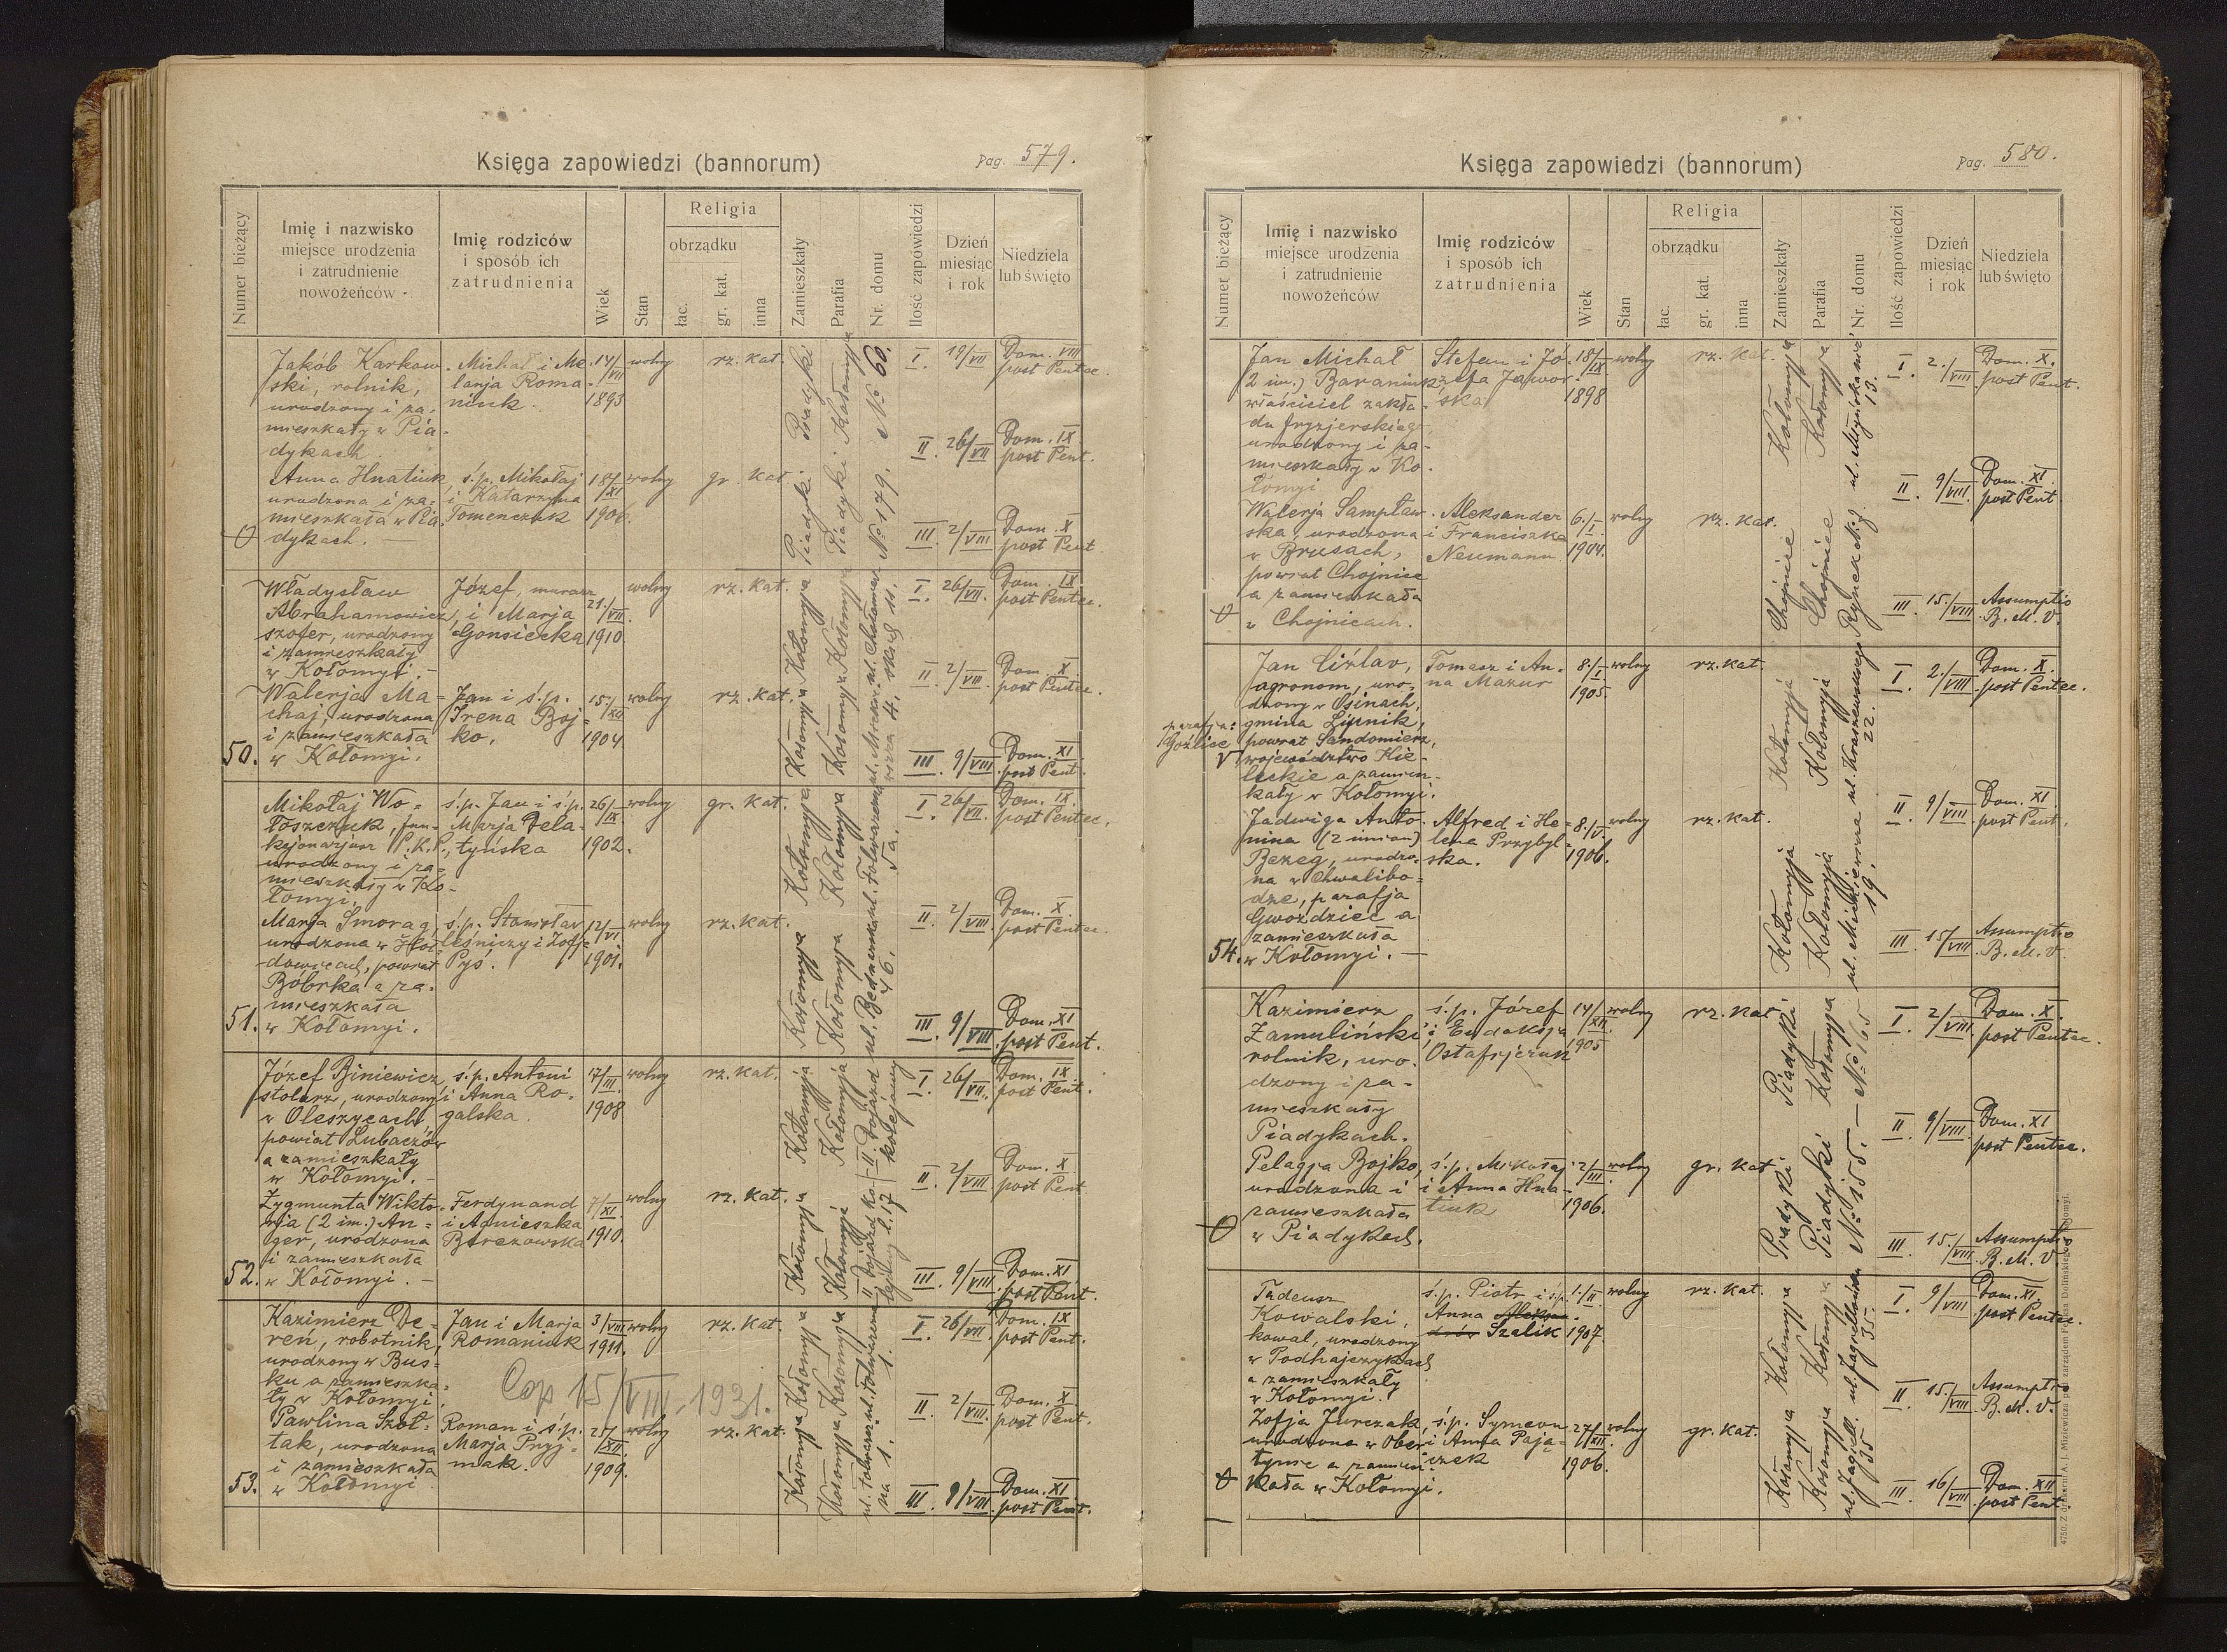 Księga zapowiedzi (bannorum)
Pag. 579.
Numer bieżący
Imię i nazwisko
miejsce urodzenia
i zatrudnienie
nowożeńców
Imię rodziców
i sposób ich
zatrudnienia
Wiek
Stan
Religia
obrządku
łac.
gr. kat.
inna
Zamieszkały
Parafia
Nr. domu
Ilość zapowiedzi
Dzień
miesiąc
i rok
Niedziela
lub święto
Jakób Karkow-
ski, rolnik,
urodzony i za-
mieszkały w Pia-
dykach.
Michał i Me-
lanja Roma-
niuk.
14/VII
1893
wolny
rz. kat.
Piadyki
Kołomyja
No 60.
I. 19/VII Dom. VIII
post Pentec.
II. 26/VII Dom. IX
post Pent.
Anna Hnatiuk
urodzona i za-
mieszkała w Pia-
dykach. —
ś.p. Mikołaj
i Katarzyna
Tomenczuk
18/XI
1906.
wolny
gr. kat.
Piadyki
Piadyki
No 179.
III. 2/VIII Dom. X
post Pent.
Władysław
Abrahamowicz,
szofer, urodzony
i zamieszkały
w Kołomyi. —
Józef, murarz
i Marja
Gonsiecka
21./VII.
1910
wolny
rz. kat.
Kołomyja
Kołomyja
I. 26/VII. Dom. IX.
post Pentec.
II. 2/VIII. Dom. X
post Pentec.
50.
Walerja Ma-
chaj, urodzona
i zamieszkała
w Kołomyi.
Jan i ś.p.
Irena Boj-
ko.
15./XII
1904
wolny
rz. kat.
Kołomyja
Kołomyja
III. 9/VIII. Dom. XI
post Pent.
Mikołaj Wo-
łoszczuk, fun-
kcjonarjusz P.K.P.,
urodzony i za-
mieszkały w Ko-
łomyi.
ś.p. Jan i ś.p.
Marja Dela-
tyńska
26/IX
1902.
wolny
gr. kat.
Kołomyja
Kołomyja
I. 26/VII. Dom. IX.
post Pentec.
II. 2/VIII. Dom. X.
post Pentec.
51.
Marja Smorąg,
urodzona w
powiat
Bóbrka a za-
mieszkała
w Kołomyi.
ś.p. Stanisław
leśniczy i Zofja
Pyś.
12/VI.
1901.
wolny
rz. kat.
Kołomyja
Kołomyja
46.
III. 9/VIII. Dom. XI
post Pent.
Józef Biniewicz
stolarz, urodzony
w Oleszycach,
powiat Lubaczów
a zamieszkały
w Kołomyi. —
ś.p. Antoni
i Anna Ro-
galska.
17/III.
1908
wolny
rz. kat.
Kołomyja
Kołomyja
II Dojazd
kolejowy
I. 26/VII. Dom. IX
post Pent.
II. 2/VIII. Dom. X
post Pent.
52.
Zygmunta Wikto-
rja (2 im.) An-
ger, urodzona
i zamieszkała
w Kołomyi. —
Ferdynand
i Agnieszka
Berezowska
7/XI.
1910.
wolny
rz. kat.
Kołomyja
Kołomyja
II Dojazd ko-
lejowy l. 17
III. 9/VIII. Dom. XI
post Pent.
Kazimierz De-
reń, robotnik,
urodzony w Bus-
ku a zamieszka-
ły w Kołomyi.
Jan i Marja
Romaniak
3/VIII
1911.
wolny
rz. kat.
Kołomyja
Kołomyja
I. 26/VII. Dom. IX
post Pent.
Cop 15/VIII. 1931.
II. 2/VIII. Dom. X
post Pent.
53.
Pawlina Szoł-
tak, urodzona
i zamieszkała
w Kołomyi
Roman i ś.p.
Marja Pryj-
mak.
27/XII.
1909.
wolny
rz. kat.
Kołomyja
Kołomyja
III. 9/VIII. Dom. XI
post Pent.
Księga zapowiedzi (bannorum)
Pag. 580.
Numer bieżący
Imię i nazwisko
miejsce urodzenia
i zatrudnienie
nowożeńców
Imię rodziców
i sposób ich
zatrudnienia
Wiek
Stan
Religia
obrządku
łac.
gr. kat.
inna
Zamieszkały
Parafia
Nr. domu
Ilość zapowiedzi
Dzień
miesiąc
i rok
Niedziela
lub święto
Jan Michał
(2 im.) Baraniuk
właściciel zakła-
du fryzjerskiego,
urodzony i za-
mieszkały w Ko-
łomyi
Stefan i Jó-
zefa Jawor-
ska
18/IX
1898
wolny
rz. kat.
Kołomyja
Kołomyja
13.
I. 2./VIII Dom. X.
post Pent.
II. 9/VIII. Dom. XI.
post Pent
Walerja Sampław-
ska, urodzona
w Brusach,
powiat Chojnice
a zamieszkała
w Chojnicach.
Aleksander
i Franciszka
Neumann
6./I.
1904.
wolny
rz. kat.
Chojnice
Chojnice
III. 15./VIII. Assumptio
B. M. V.
Jan Ciźlav,
agronom, uro-
dzony w Osinach,
gmina Lipnik,
powiat Sandomierz,
województwo Kie-
leckie a zamiesz-
kały w Kołomyi.
parafja:
Goźlice
Tomasz i An-
na Mazur
8./I
1905.
wolny
rz. kat.
Kołomyja
Kołomyja
ul. Kraszewskiego
22.
I. 2./VIII. Dom. X.
post Pentec.
II. 9/VIII. Dom. XI.
post Pent.
54.
Jadwiga Anto-
nina (2 imion)
Bezeg, urodzo-
na w Chwalibo-
dze, parafja
Gwoździec a
zamieszkała
w Kołomyi. —
Alfred i He-
lena Przybyl-
ska.
8./V.
1906.
wolny
rz. kat.
Kołomyja
Kołomyja
19.
III. 15/VIII. Assumptio
B. M. V.
Kazimierz
Zamuliński
rolnik, uro-
dzony i za-
mieszkały
Piadykach.
ś.p. Józef
i Eudoksja
Ostafijczuk
14/XII.
1905
wolny
rz. kat
Piadyki
Kołomyja
No 165
I. 2/VIII. Dom. X.
post Pentec.
II. 9/VIII. Dom. XI
post Pentec.
Pelagja Bojko,
urodzona i
zamieszkała
w Piadykach.
ś.p. Mikołaj
i Anna Hna-
tiuk
2/III.
1906.
wolny
gr. kat
Piadyki
Piadyki
No 155. —
III. 15./VIII. Assumptio
B. M. V.
Tadeusz
Kowalski,
kowal, urodzony
w Podhajczykach
a zamieszkały
w Kołomyi.
ś.p. Piotr i ś.p.
Anna
Szelik
1./II
1907.
wolny
rz. kat.
Kołomyja
Kołomyja
ul. Jagiellońska
35.
I. 9/VIII Dom. XI.
post Pentec.
II. 15./VIII. Assumptio
B. M. V.
Zofja Jurczak,
urodzona w Ober-
tynie a zamiesz-
kała w Kołomyi.
ś.p. Symeon
i Anna Pają-
czek
27/XII.
1906.
wolny
gr. kat.
Kołomyja
Kołomyja
ul. Jagiell.
35.
III. 16/VIII. Dom. XII
post Pent.